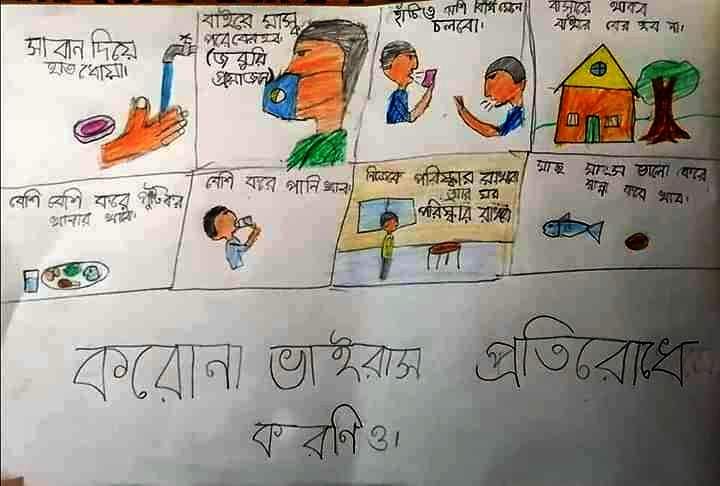 সাবান দিয়ে
হাত ধোয়া।
বাইরে মাস্ক
পরে বের হব।
(জরুরি
প্রয়োজন)
হাঁচি ও কাশি বিধি মেনে
চলবো।
বাসায় থাকব
বাইরে বের হব না।
বেশি বেশি করে পুষ্টিকর
খাবার খাব।
বেশি করে পানি খাব।
নিজেকে পরিষ্কার রাখব
আর ঘর
পরিষ্কার রাখব
মাছ মাংস ভালো করে
রান্না করে খাব।
করোনা ভাইরাস প্রতিরোধে
করণিও।